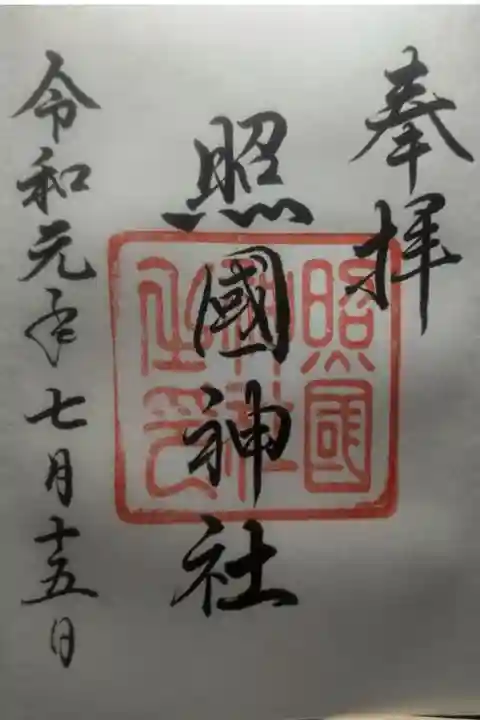 奉拝
照國神社
照國
神社
之印
令和元年七月十五日